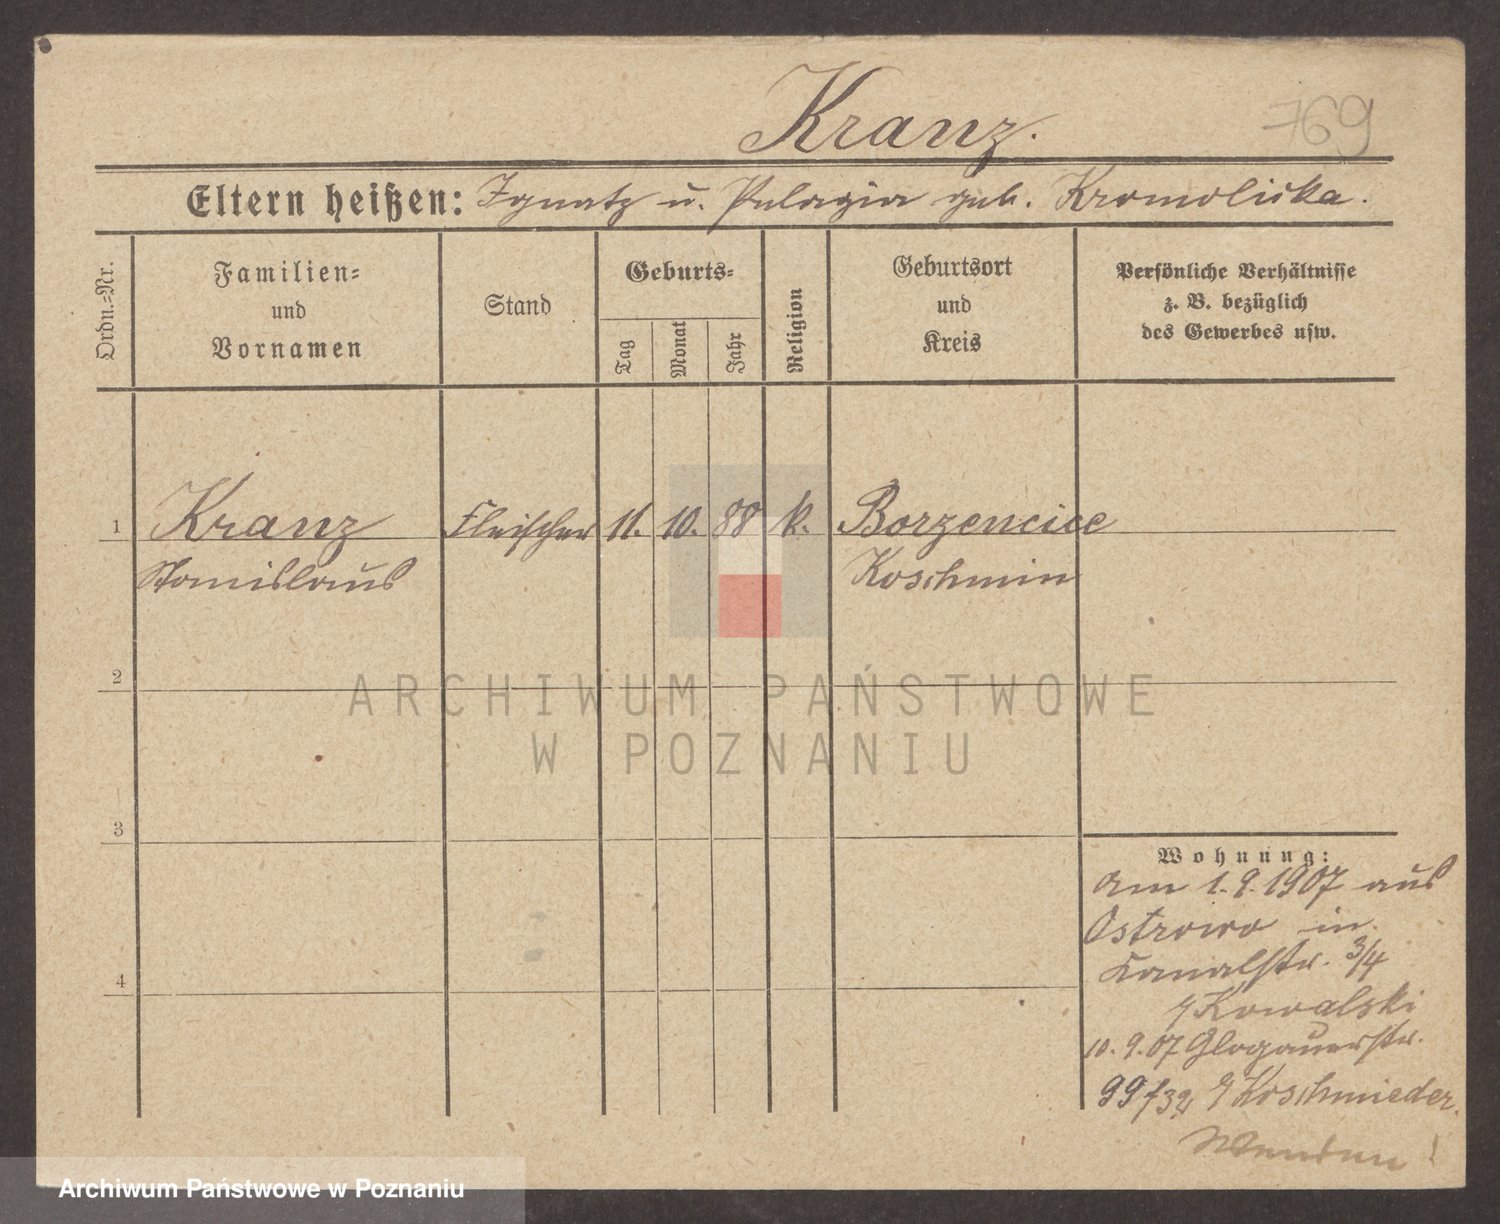 Kranz.
769
Eltern heißen: Ignatz u. Pelagia geb. Kromolicka.
Ordn.=Nr.
Familien=
und
Vornamen
Stand
Geburts=
Tag
Monat
Jahr
Religion
Geburtsort
und
Kreis
Persönliche Verhältnisse
z. B. bezüglich
des Gewerbes usw.
1 Kranz Fleischer 11. 10. 88 k. Borzencice
Stanislaus Koschmin
2
3
4
Wohnung:
Am 1.9.1907 aus
Ostrowo in
Kanalstr. 3/4
Kowalski
10.9.07 Glogauerstr.
99 Koschmieder.
Wenden!
ARCHIWUM PAŃSTWOWE
W POZNANIU
Archiwum Państwowe w Poznaniu